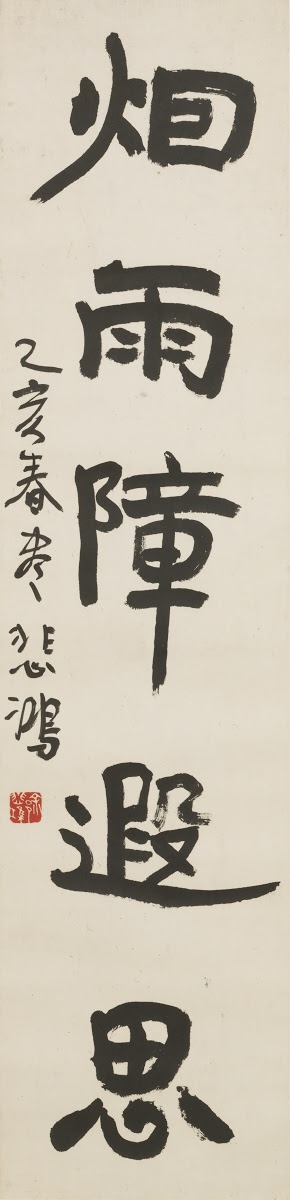 烟雨障遐思
乙亥春尽
悲鸿